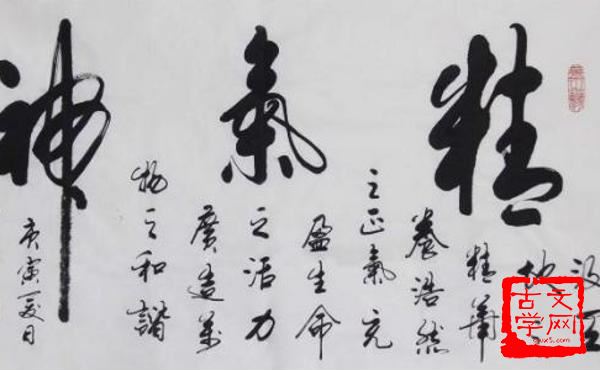 精氣神
汲
地
精華
養浩然
之正氣充
盈生命
之活力
廣造萬
物之和諧
庚寅夏日
古文
学网